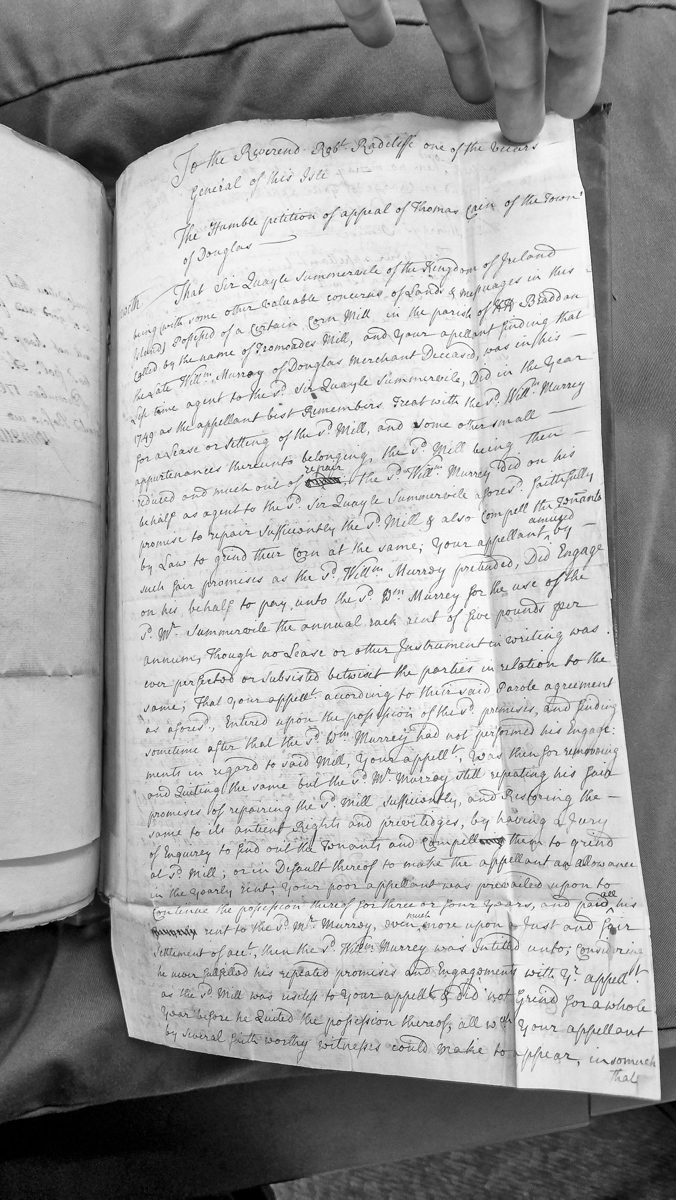 To the Reverend Robt. Radcliffe one of the Vicars
General of this Isle
The Humble petition of appeal of Thomas Cain of the Town
of Douglas
That Sir Quayle Summervile of the Kingdom of Ireland
being with some other valuable concerns of Lands & messuages in this
Island) Possessed of a Certain Corn Mill in the parish of KK Braddan
called by the name of Tromoades Mill, and Your apellant finding that
the late Willm. Murray of Douglas Merchant Deceased, was in his
life time agent to the sd. Sir Quayle Summervile, Did in the Year
1749 as the appellant best Remembers Treat with the sd. Willm. Murrey
for a Lease or setting of the sd. Mill, and some other small
appurtenances thereunto belonging, the sd. Mill being then
reduced and much out of repair, the sd. Willm. Murrey Did on his
behalf as agent to the sd. Sir Quayle Summervile aforesd. faithfully
promise to repair sufficiently the sd. Mill & also Compell the Tenants
by Law to grind their Corn at the same; Your appellant amused by
such fair promises as the sd. Willm. Murray pretended, Did Engage
on his behalf to pay unto the sd. Wm. Murrey for the use of the
sd. Mr. Summervile the annual rack rent of five pounds per
annum, Though no Lease or other Instrument in writing was
ever perfected or subsisted betwixt the parties in relation to the
same; That Your appellt. according to their said Parole agreement
as aforesd., Entired upon the possession of the sd. premises, and finding
sometime after that the sd. Wm. Murrey had not performed his Engage:
ments in regard to said Mill, Your appellt., Was then for removeing
and Quiting the same but the sd. Mr. Murray still repeating his fair
promises of repairing the sd. Mill sufficiently, and Restoring the
same to its antient Rights and priviledges, by haveing a Jury
of Enquirey to find out the Tenants and Compell them to grind
at sd. Mill; or in Default thereof to make the appellant an allowance
in the Yearly rent; Your poor appellant was prevailed upon to
Continue the possession thereof for three or four Years, and paid all his
rent to the sd. Mr. Murray, even much more upon a Just and fair
settlement of acct. then the sd. Willm. Murrey was Intitled unto; Considering
he never fulfilled his repeated promises and Engagements with Yr. appellt.
as the sd. Mill was useless to Your appellt. & did not Grind for a whole
Year before he Quited the possession thereof, all wch. Your appellant
by several faith worthy witnesses could make to appear, in somuch
that